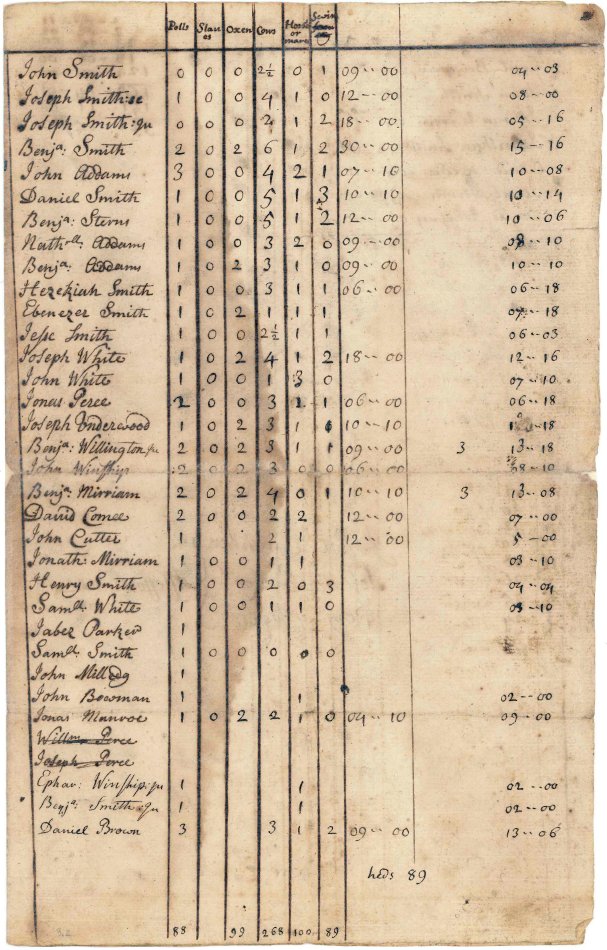 Polls Slaves Oxen Cows Horse or mare Swin
John Smith 0 0 0 2½ 0 1 09-00 04-03
Joseph Smith:se 1 0 0 4 1 0 12-00 08-00
Joseph Smith:Ju 0 0 0 2 1 2 18-00 05-16
Benja: Smith 2 0 2 6 1 2 30-00 15-16
John Addams 3 0 0 4 2 1 07-10 10-08
Daniel Smith 1 0 0 5 1 3 10-10 10-14
Benja: Sterns 1 0 0 5 1 2 12-00 10-06
Nathll: Addams 1 0 0 3 2 0 09-00 08-10
Benja: Addams 1 0 2 3 1 0 09-00 10-10
Hezekiah Smith 1 0 0 3 1 1 06-00 06-18
Ebenezer Smith 1 0 2 1 1 1 -18
Jesse Smith 1 0 0 2½ 1 1 06-03
Joseph White 1 0 2 4 1 2 18-00 12-16
John White 1 0 0 1 3 0 07-10
Jonas Perce 2 0 0 3 2 1 06-00 06-18
Joseph Underwood 1 0 2 3 1 10-10 -18
Benja: Willington Ju 2 0 2 3 1 1 09-00 3 13-18
John Winship 2 0 2 3 0 0 06-00 08-10
Benja: Mirriam 2 0 2 4 0 1 10-10 3 13-08
David Comee 2 0 0 2 2 12-00 07-00
John Cutter 1 2 1 12-00 5-00
Jonath: Mirriam 1 0 0 1 1 03-10
Henry Smith 1 0 0 2 0 3 04-04
Samll: White 1 0 0 1 1 0 -10
Jabez Parker 1
Samll: Smith 1 0 0 0 0 0
John Milledg 1
John Bowman 1 1 02-00
Jonas Manroe 1 0 2 2 1 0 04-10 09-00
Willm Perce
Joseph Perce
Ephar: Winship:Ju 1 1 02-00
Benja: Smith:Ju 1 1 02-00
Daniel Brown 3 3 1 2 09-00 13-06
heds 89
88 99 268 100 89